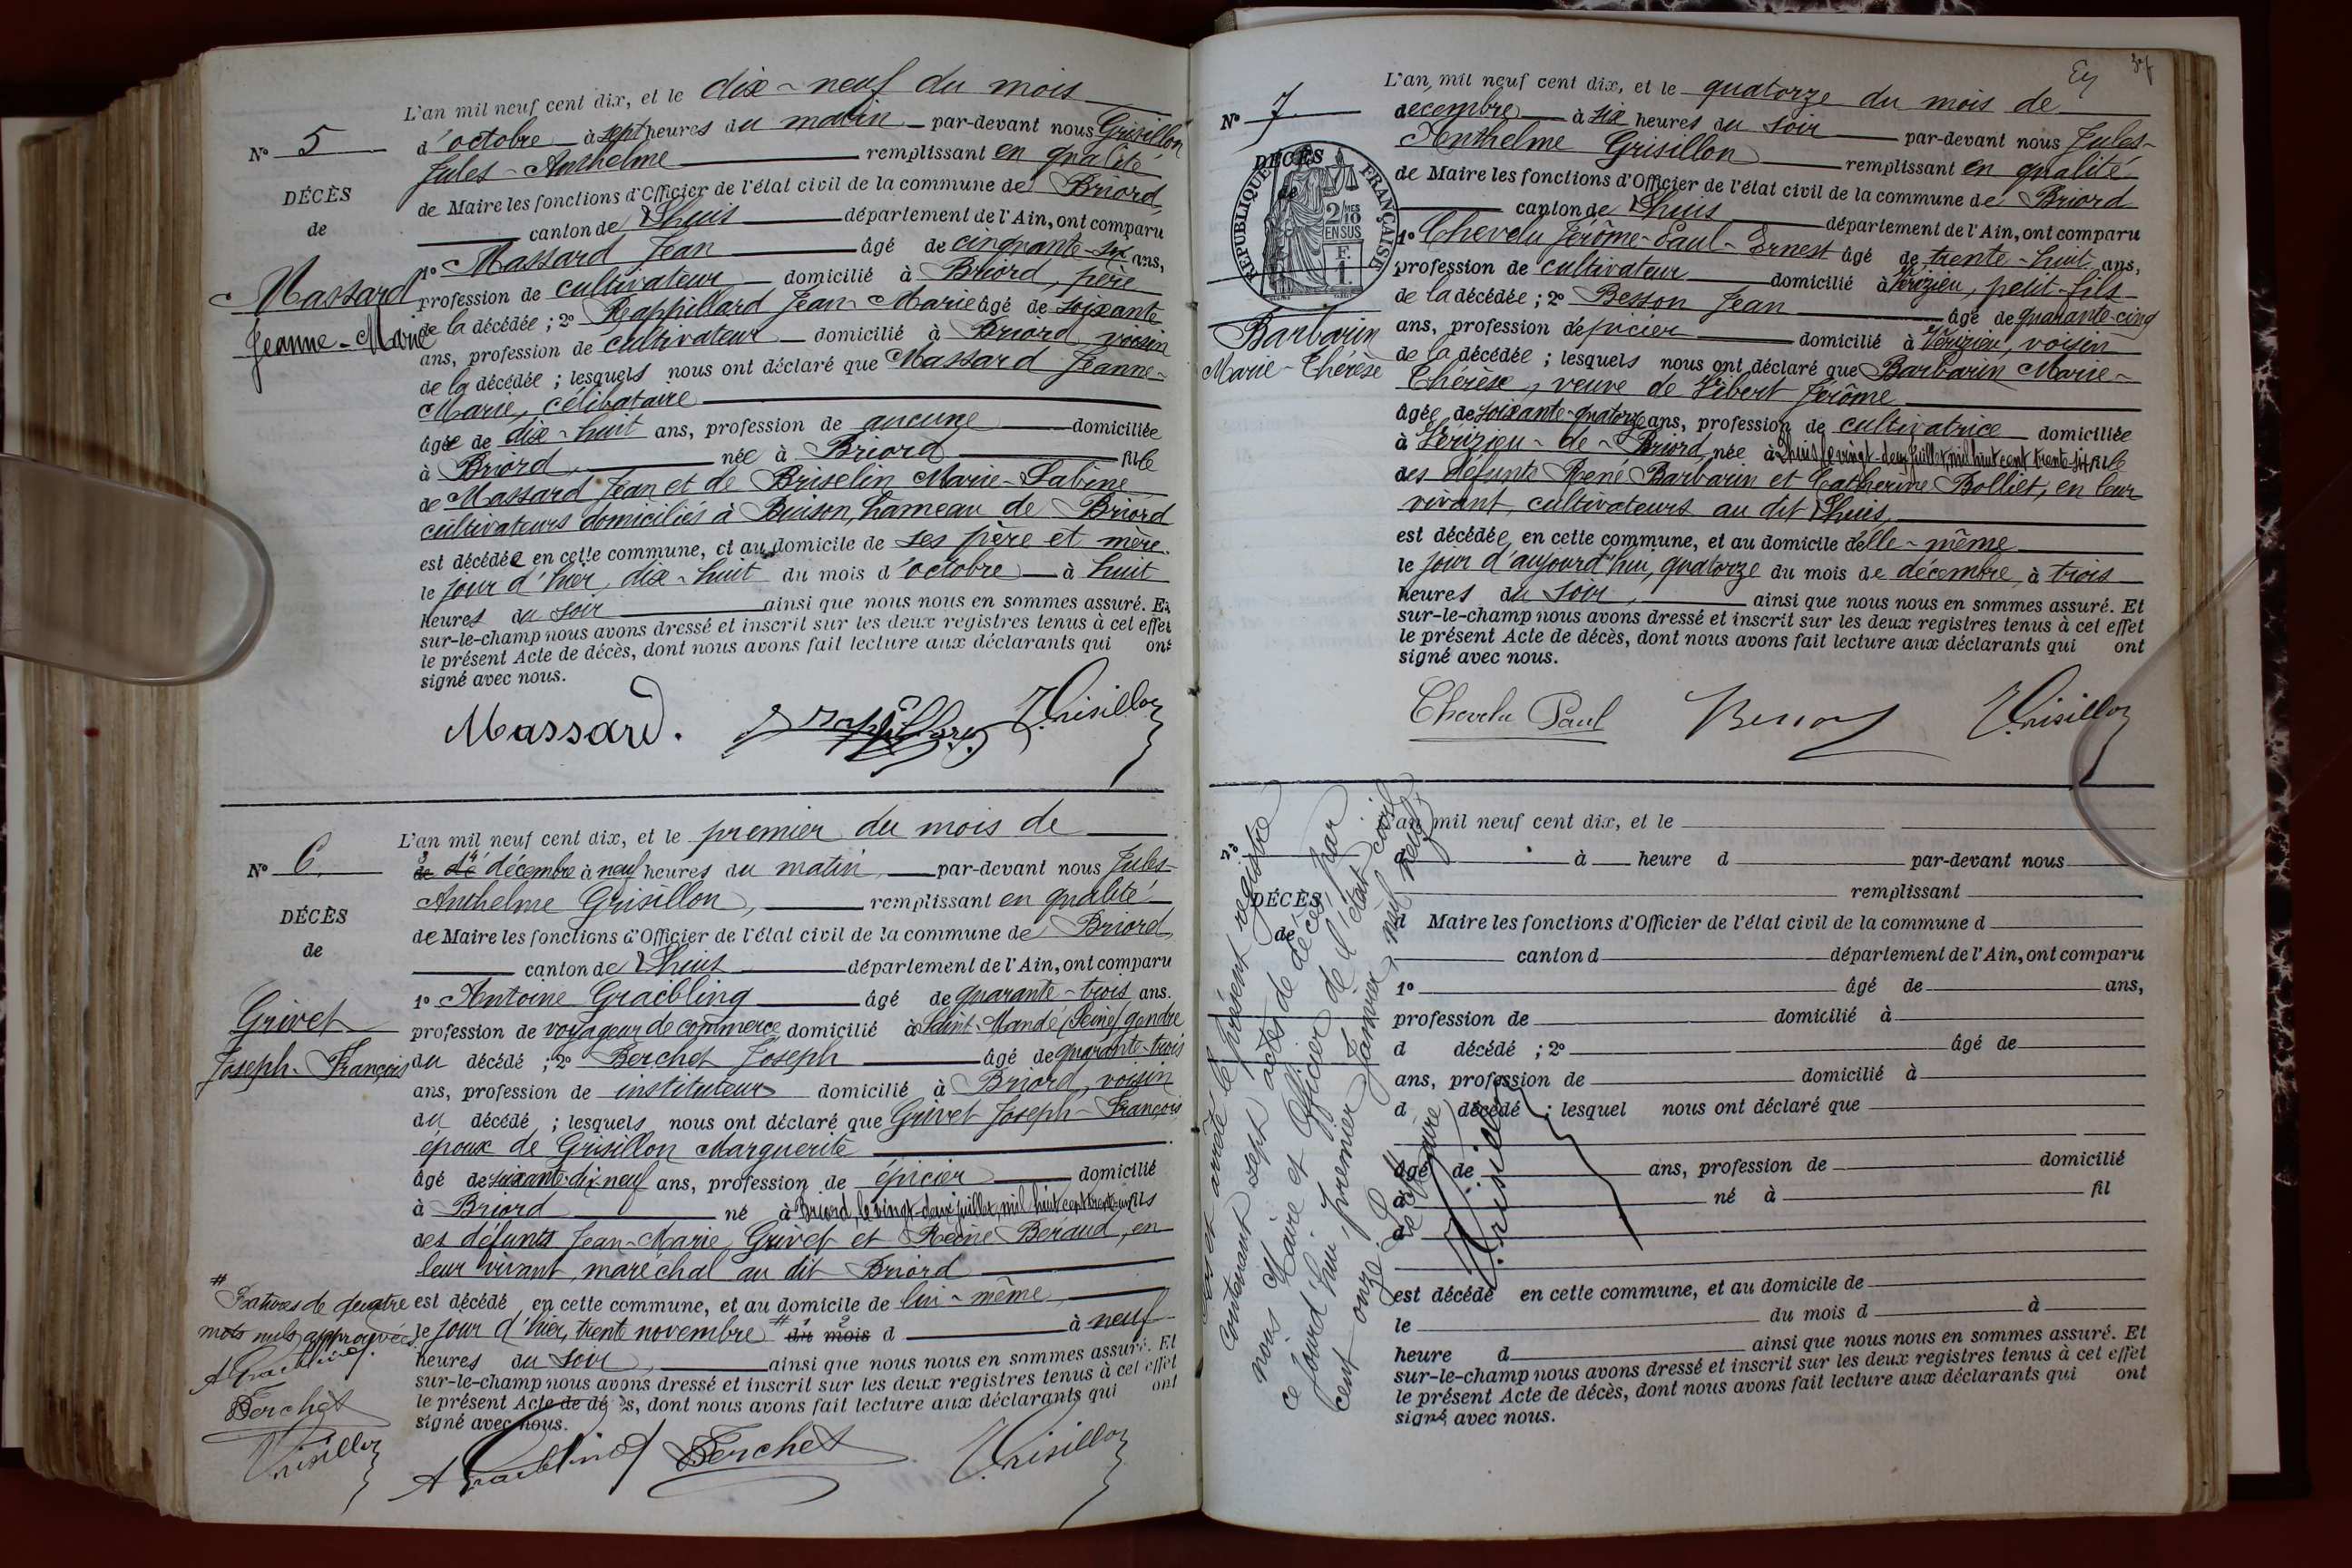 N° 5
DÉCÈS
de
Massard
Jeanne-Marie
L'an mil neuf cent dix, et le dix-neuf du mois
d'octobre à sept heures du matin par-devant nous Grisillon
Jules-Anthelme remplissant en qualité
de Maire les fonctions d'Officier de l'état civil de la commune de Briord,
canton de Lhuis département de l'Ain, ont comparu
1° Massard Jean âgé de cinquante-six ans,
profession de cultivateur domicilié à Briord, père
de la décédée ; 2° Rappillard Jean-Marie âgé de soixante
ans, profession de cultivateur domicilié à Briord, voisin
de la décédée ; lesquels nous ont déclaré que Massard Jeanne-
Marie, célibataire
âgée de dix-huit ans, profession de aucune domiciliée
à Briord née à Briord fille
de Massard Jean et de Briselin Marie-Sabine
cultivateurs domiciliés à Buison, hameau de Briord
est décédée en cette commune, et au domicile de ses père et mère.
le jour d'hier, dix-huit du mois d'octobre à huit
heures du soir ainsi que nous nous en sommes assuré. Et
sur-le-champ nous avons dressé et inscrit sur les deux registres tenus à cet effet
le présent Acte de décès, dont nous avons fait lecture aux déclarants qui ont
signé avec nous.
Massard. Grisillon
N° 6.
DÉCÈS
de
Grivet
Joseph-François
L'an mil neuf cent dix, et le premier du mois de
de de décembre à neuf heures du matin, par-devant nous Jules-
Anthelme Grisillon, remplissant en qualité
de Maire les fonctions d'Officier de l'état civil de la commune de Briord,
canton de Lhuis département de l'Ain, ont comparu
1° Antoine Graibling âgé de quarante-trois ans.
profession de voyageur de commerce domicilié à Saint-Mandé (Seine) gendre
du décédé ; 2° Berchet Joseph âgé de quarante-trois
ans, profession de instituteur domicilié à Briord, voisin
du décédé ; lesquels nous ont déclaré que Grivet Joseph-François
époux de Grisillon Marguerite
âgé de soixante-dix-neuf ans, profession de épicier domicilié
à Briord né à Briord, le vingt-deux juillet, mil huit cent trente-un fils
des défunts Jean-Marie Grivet et Reine Beraud, en
leur vivant, maréchal au dit Briord
est décédé en cette commune, et au domicile de lui-même,
le jour d'hier, trente novembre # du mois d à neuf
heures du soir, ainsi que nous nous en sommes assuré. Et
sur-le-champ nous avons dressé et inscrit sur les deux registres tenus à cet effet
le présent Acte de décès, dont nous avons fait lecture aux déclarants qui ont
signé avec nous.
# Ratures de quatre
mots nuls approuvées.
A Graibling
Berchet
Grisillon
A Graibling Berchet Grisillon
N° 7
DÉCÈS
de
RÉPUBLIQUE FRANÇAISE
2/10MES
EN SUS
F.
1.
Barbarin
Marie-Thérèse
L'an mil neuf cent dix, et le quatorze du mois de
décembre à six heures du soir par-devant nous Jules-
Anthelme Grisillon remplissant en qualité
de Maire les fonctions d'Officier de l'état civil de la commune de Briord
canton de Lhuis département de l'Ain, ont comparu
1° Chevelu Jérôme-Paul-Ernest âgé de trente-huit ans,
profession de cultivateur domicilié à Vérizieu, petit-fils
de la décédée ; 2° Besson Jean âgé de quarante-cinq
ans, profession d'épicier domicilié à Vérizieu, voisin
de la décédée ; lesquels nous ont déclaré que Barbarin Marie-
Thérèse, veuve de Jibert Jérôme
âgée de soixante-quatorze ans, profession de cultivatrice domiciliée
à Vérizieu-de-Briord née à Lhuis le vingt-deux juillet, mil huit cent trente-six fille
des défunts René Barbarin et Catherine Bolliet, en leur
vivant, cultivateurs au dit Lhuis,
est décédée en cette commune, et au domicile d'elle-même
le jour d'aujourd'hui, quatorze du mois de décembre, à trois
heures du soir, ainsi que nous nous en sommes assuré. Et
sur-le-champ nous avons dressé et inscrit sur les deux registres tenus à cet effet
le présent Acte de décès, dont nous avons fait lecture aux déclarants qui ont
signé avec nous.
Chevelu Paul Besson Grisillon
N°
DÉCÈS
de
L'an mil neuf cent dix, et le
à heure d par-devant nous
remplissant
d Maire les fonctions d'Officier de l'état civil de la commune d
canton d département de l'Ain, ont comparu
1° âgé de ans,
profession de domicilié à
d décédé ; 2° âgé de
ans, profession de domicilié à
d décédé ; lesquel nous ont déclaré que
âgé de ans, profession de domicilié
à né à fil
d
est décédé en cette commune, et au domicile de
le du mois d à
heure d ainsi que nous nous en sommes assuré. Et
sur-le-champ nous avons dressé et inscrit sur les deux registres tenus à cet effet
le présent Acte de décès, dont nous avons fait lecture aux déclarants qui ont
signé avec nous.
Clos et arrêté le présent registre
contenant sept actes de décès par
nous Maire et Officier de l'état civil
ce jourd'hui, premier Janvier, mil neuf
cent onze
Le Maire
Grisillon